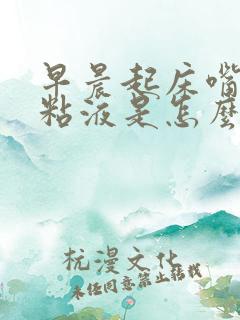 早晨起床嘴
粘液是怎么
杭漫文化
未经同意禁止转载